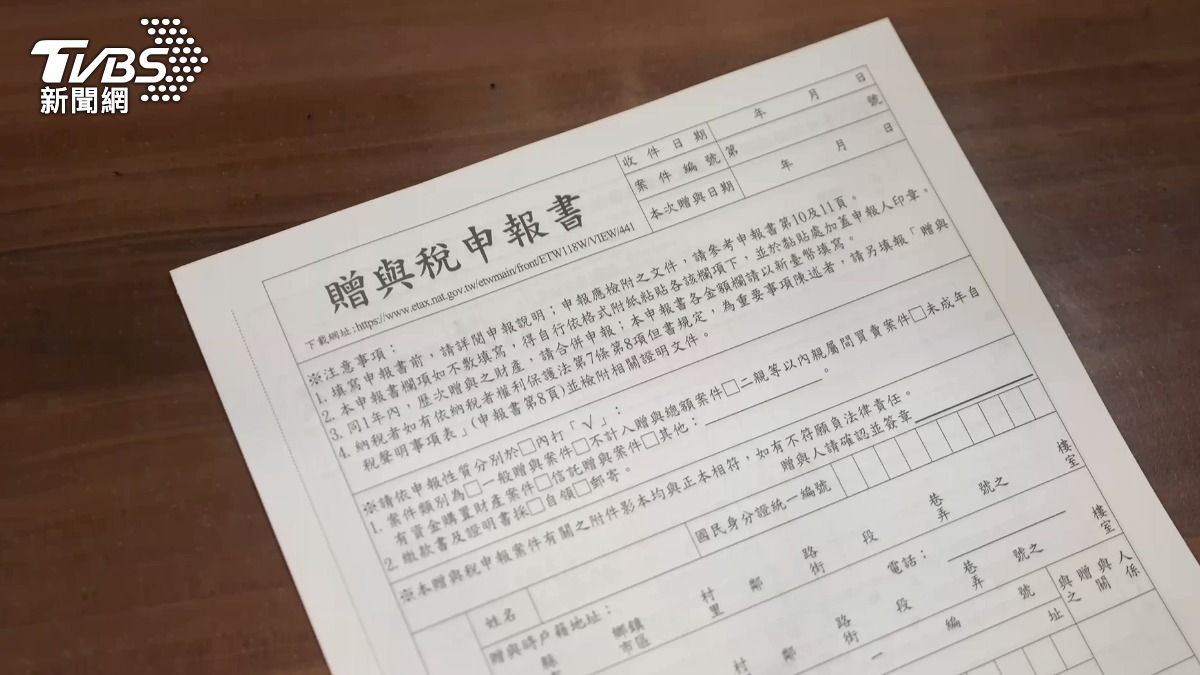 TVBS
新聞網
收件日期 年 月 日
案件編號 第 號
本次贈與日期 年 月 日
贈與稅申報書
下載網址:https://www.etax.nat.gov.tw/etwmain/front/ETW118W/VIEW/441
※注意事項：
1. 填寫申報書前，請詳閱申報說明；申報應檢附之文件，請參考申報書第10及11頁。
2. 本申報書欄項如不敷填寫，得自行依格式附紙粘貼各該欄項下，並於黏貼處加蓋申報人印章。
3. 同1年內，歷次贈與之財產，請合併申報；本申報書各金額欄請以新臺幣填寫。
4. 納稅者如有依納稅者權利保護法第7條第8項但書規定，為重要事項陳述者，請另填報「贈與
稅聲明事項表」(申報書第8頁)並檢附相關證明文件。
※請依申報性質分別於□內打「√」：
1. 案件類別為□一般贈與案件□不計入贈與總額案件□二親等以內親屬間買賣案件□未成年自
有資金購置財產案件□信託贈與案件□其他：。
2. 繳款書及證明書採□自領□郵寄。
※本贈與稅申報案件有關之附件影本均與正本相符，如有不符願負法律責任。
贈與人請確認並簽章
姓名 國民身分證統一編號
贈與時戶籍地址： 鄉鎮 村 鄰 路 段 巷 號之 樓
縣 市區 里 街 弄 室
電話：
村 鄰 路 段 巷 號之 樓
街 弄 室
編 號 與贈與人
址 之關係